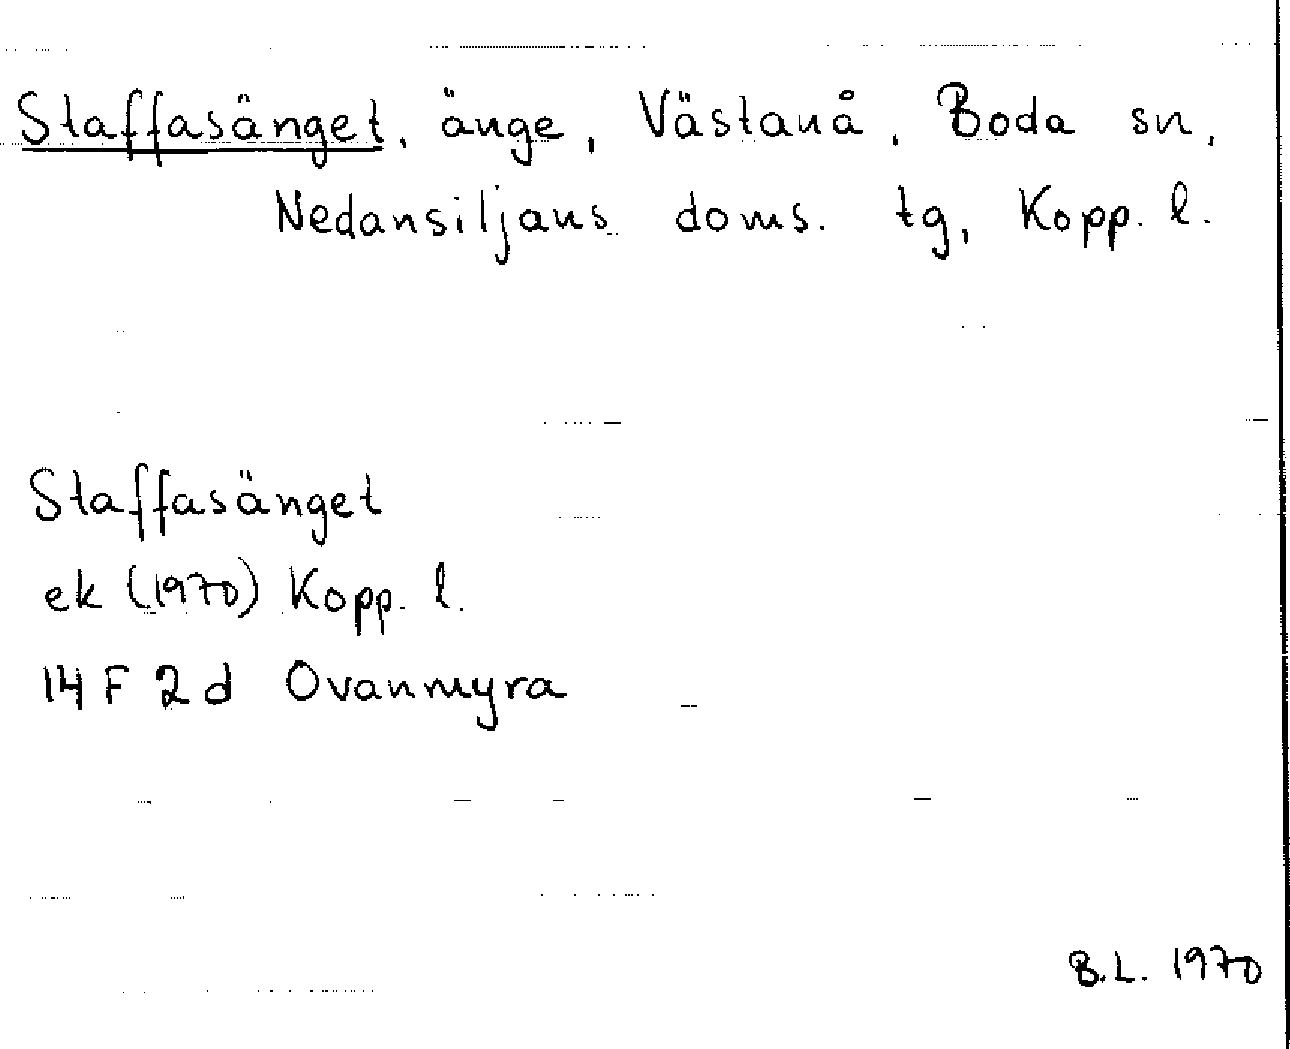 Staffasänget, änge, Västanå, Boda sn,
Nedansiljans doms. tg, Kopp. l.
Staffasänget
ek (1970) Kopp. l.
14 F 2 d Ovanmyra
B.L. 1970